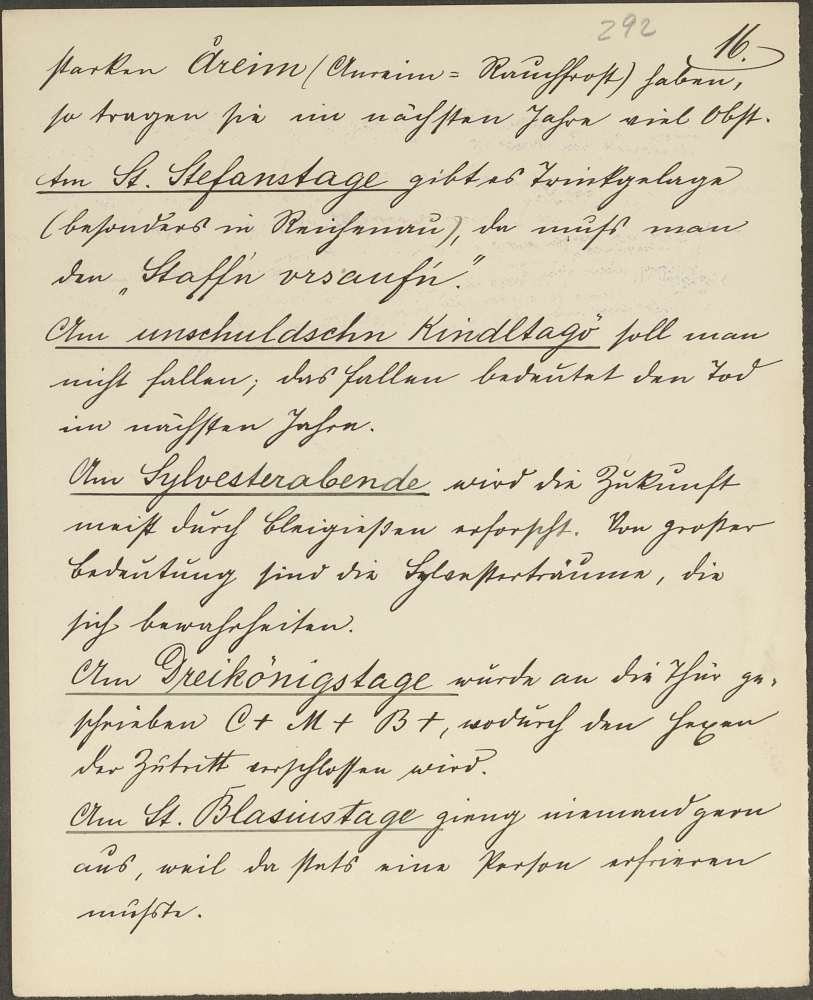 292
16.
starken Åreim (Anreim = Rauchfrost) haben,
so tragen sie im nächsten Jahre viel Obst.
Am St. Stefanstage gibt es Trinkgelage
(besonders in Reichenau), da muss man
den „Staff'n vrsaufn̄."
Am unschuldschn Kindltagö soll man
nicht fallen; das Fallen bedeutet den Tod
im nächsten Jahre.
Am Sylvesterabende wird die Zukunft
meist durch Bleigießen erforscht. Von großer
Bedeutung sind die Sylvesterträume, die
sich bewahrheiten.
Am Dreikönigstage wurde an die Thür ge-
schrieben C+ M+ B+, wodurch den Hexen
der Zutritt verschlossen wird.
Am St. Blasiustage gieng niemand gern
aus, weil da stets eine Person erfrieren
musste.